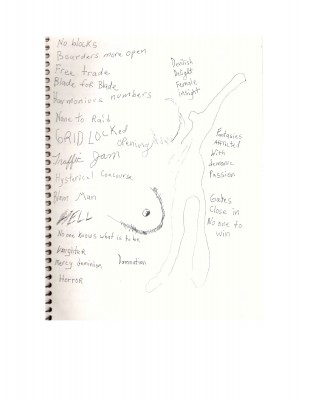 No blocks
Bourders more open
Free trade
Blade for Blade
Harmonics numbers
None To Raib
GRIDLOCKed
Traffic Jam
Hysterical Concourse
Man
HELL
No one knows what is to be
Daughter
Mercy dominion
Horror
Damnation
Devilish
Delight
Female
insight
Fantasies
Attracted
with
demonic
Passion
Gates
Close in
No one to
win